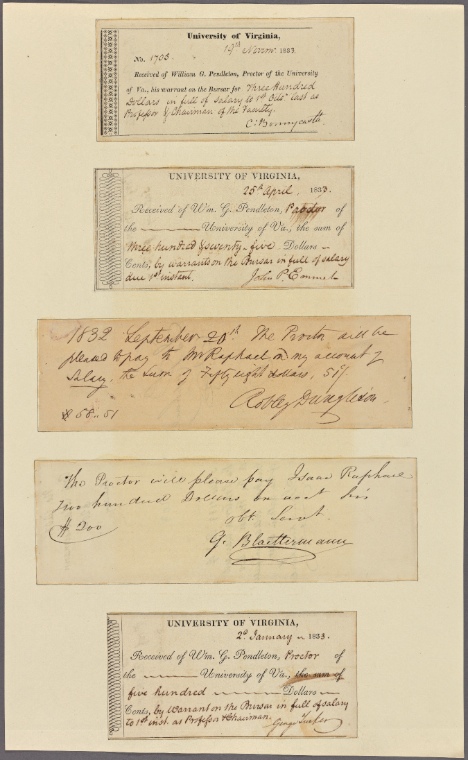 University of Virginia,
1833
No. 1703.
Received of William G. Pendleton, Proctor of the University
of Va., his warrant on the Bursar for Three Hundred
Dollars in full of salary to 1st Octr last as
Professor & Chairman of the Faculty.
C: Bonnycastle
UNIVERSITY OF VIRGINIA,
25th April, 1833.
Received of Wm. G. Pendleton, Proctor of
the University of Va., the sum of
three hundred & seventy-five Dollars
Cents, by warrants on the Bursar in full of salary
due 1st instant. John P. Emmet
1832 September 20th The Proctor will be
pleased to pay to Mr Raphael on my account of
Salary, the sum of Fifty eight dollars, 51/
$ 58-51 Robley Dunglison
The Proctor will please pay Isaac Raphael
two hundred Dollars on acct his
$ 200 obt. Servt.
G. Blaettermann
UNIVERSITY OF VIRGINIA,
2d January 1833.
Received of Wm. G. Pendleton, Proctor of
the University of Va., the sum of
five hundred Dollars
Cents, by Warrant on the Bursar in full of salary
to 1st inst. as Professor & Chairman.
George Tucker